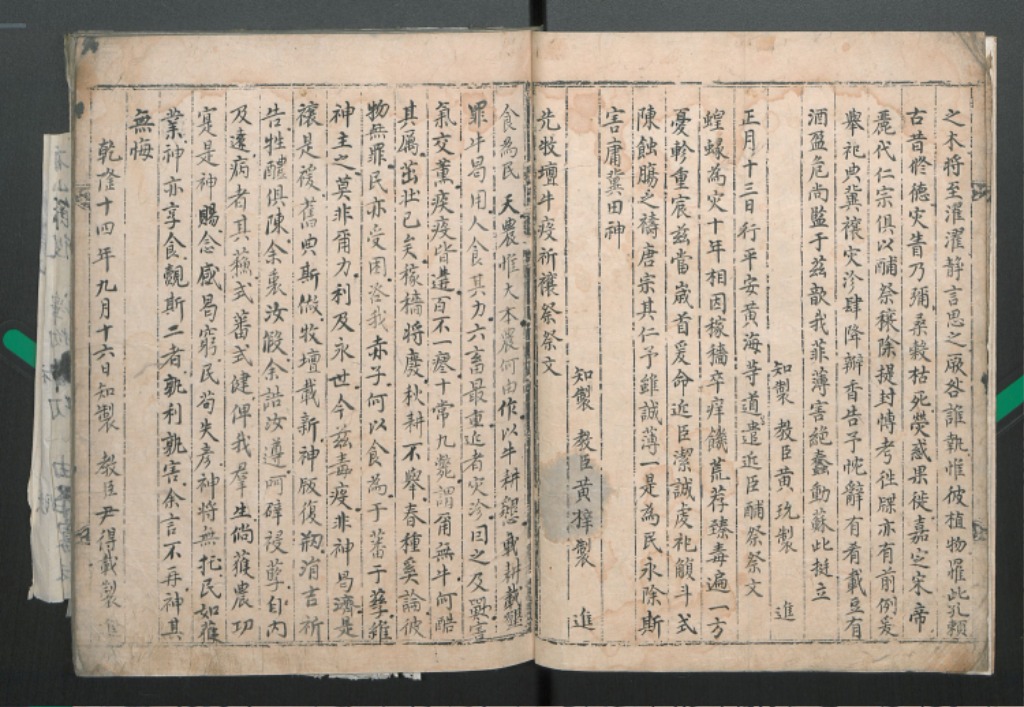 之木將至濯濯静言思之厥咎誰執惟彼植物罹此孔頼
古昔修德灾眚乃彌桑穀枯死熒惑果徙嘉定宋帝
麗代仁宗俱以酺祭穰除提封愽考徃牒亦有前例爰
舉祀典冀禳灾沴肆降辦香告予忱辭有肴載豆有
酒盈卮尚監于茲歆我菲薄害絶蠢動蘇此挺立
知製 教臣黃玧製 進
正月十三日行平安黄海等道遣近臣酺祭祭文
蝗蝝為灾十年相因稼穡卒痒饑荒荐臻毒遍一方
憂軫重宸茲當嵗首爰命近臣潔誠虔祀籲斗式
陳蝕腸之禱唐宗其仁予雖誠薄一是為民永除斯
害庸冀田神
先牧壇牛疫祈禳祭祭文
知製 教臣黃梓製 進
食為民天農惟大本農何由作以牛耕墾戰耕載
罪牛曷用人食其力六畜最重近者灾沴因之及
氣交薰疾疫皆進百不一瘳十常九斃謂甭無牛何酷
其属茁壮已矣稼穡將慶秋耕不舉春種奚論彼
物無罪民亦受困咨我赤子何以食為于蕃于孳維
神主之莫非甭力利及永世今茲毒疫非神曷濟是
禳是祓舊典斯倣牧壇載新神版復剏涓吉祈
告牲醴俱陳余衷汝假余誥汝遵呵磔祲孽自内
及遠病者其蘓式蕃式健俾我羣生倘獲農功
寔是神賜念感曷窮民苟失彦神將無托民如獲
業神亦享食覩斯二者孰利孰害余言不再神其
無悔
乾隆十四年九月十六日知製 教臣尹得載製 進